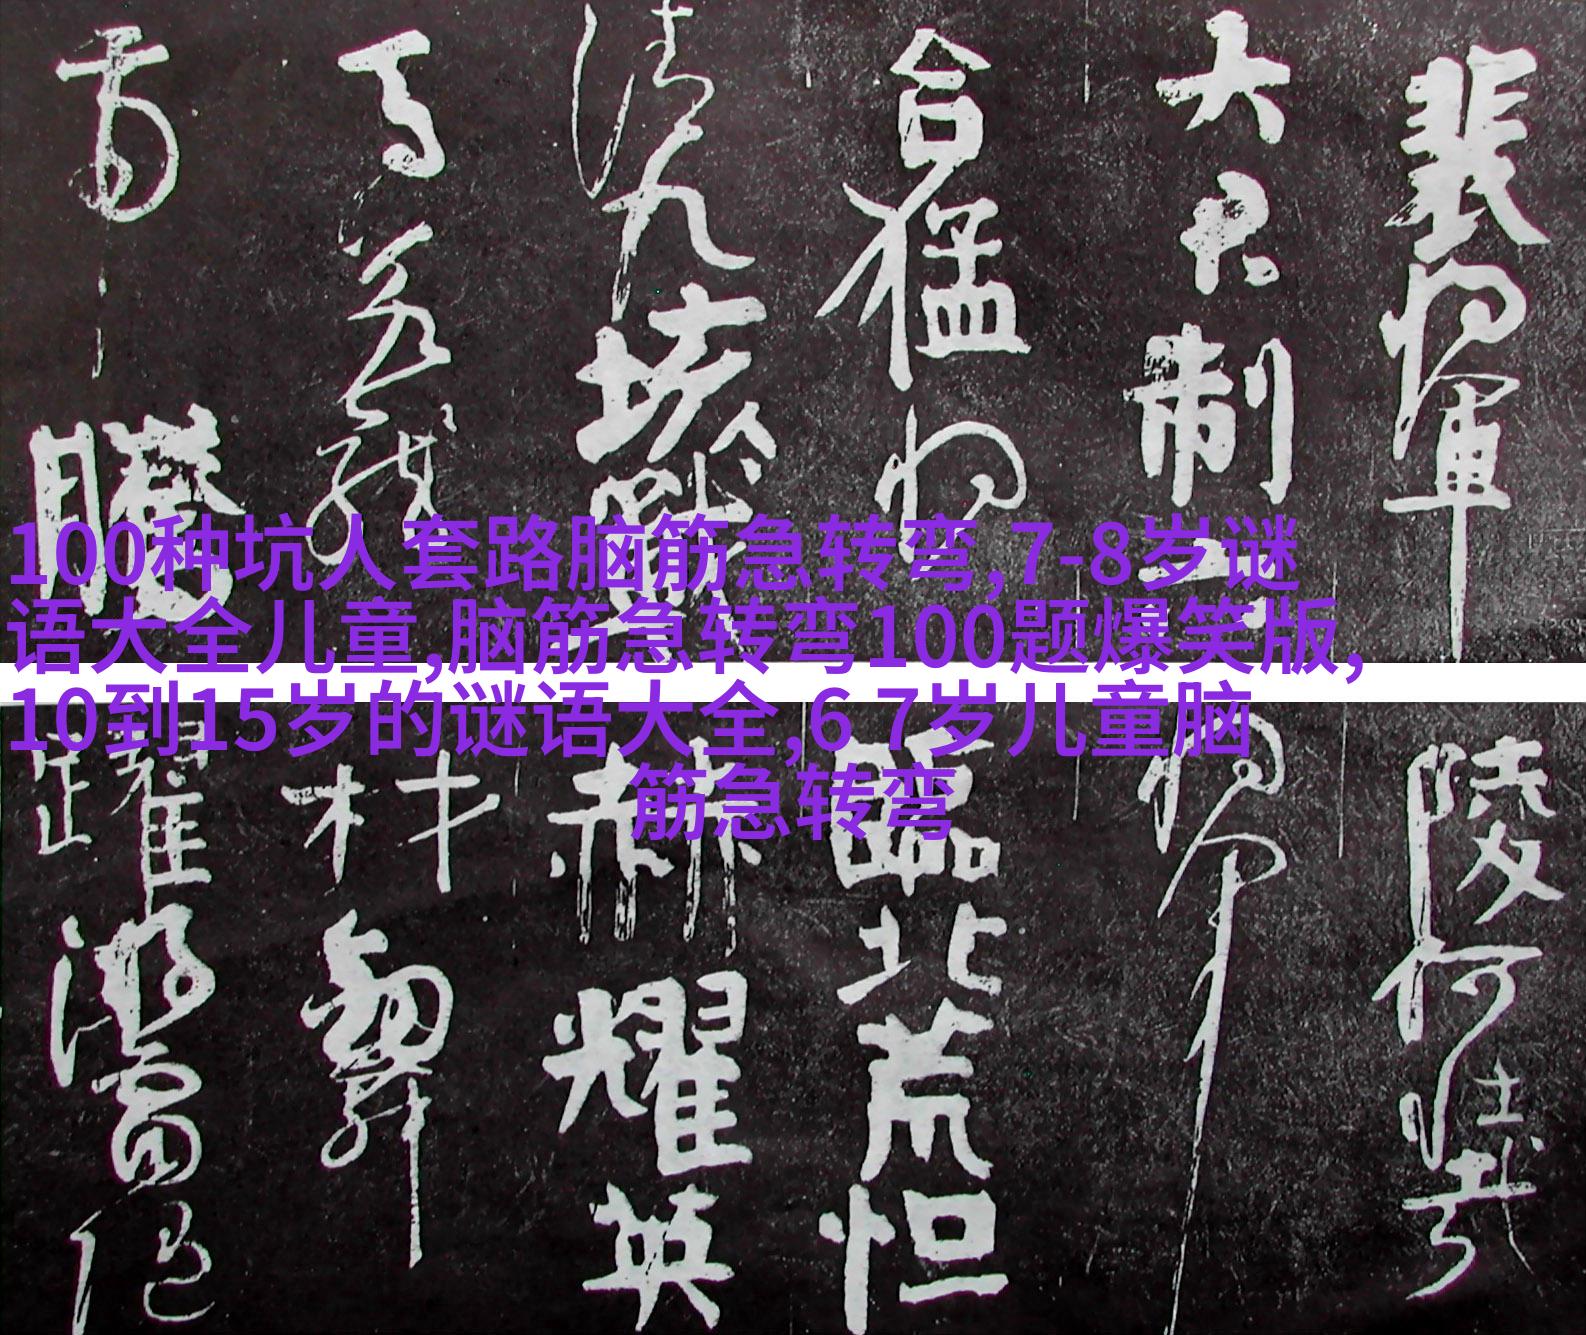 100种坑人套路脑筋急转弯,7-8岁谜
语大全儿童,脑筋急转弯100题爆笑版,
10到15岁的谜语大全,6 7岁儿童脑
筋急转弯
裴将軍
大君制六
合猛将
清九垓戰
馬若龍
虎騰
陵何壮哉
将軍
臨北荒恒
赫耀英
材劍舞
躍游雷随